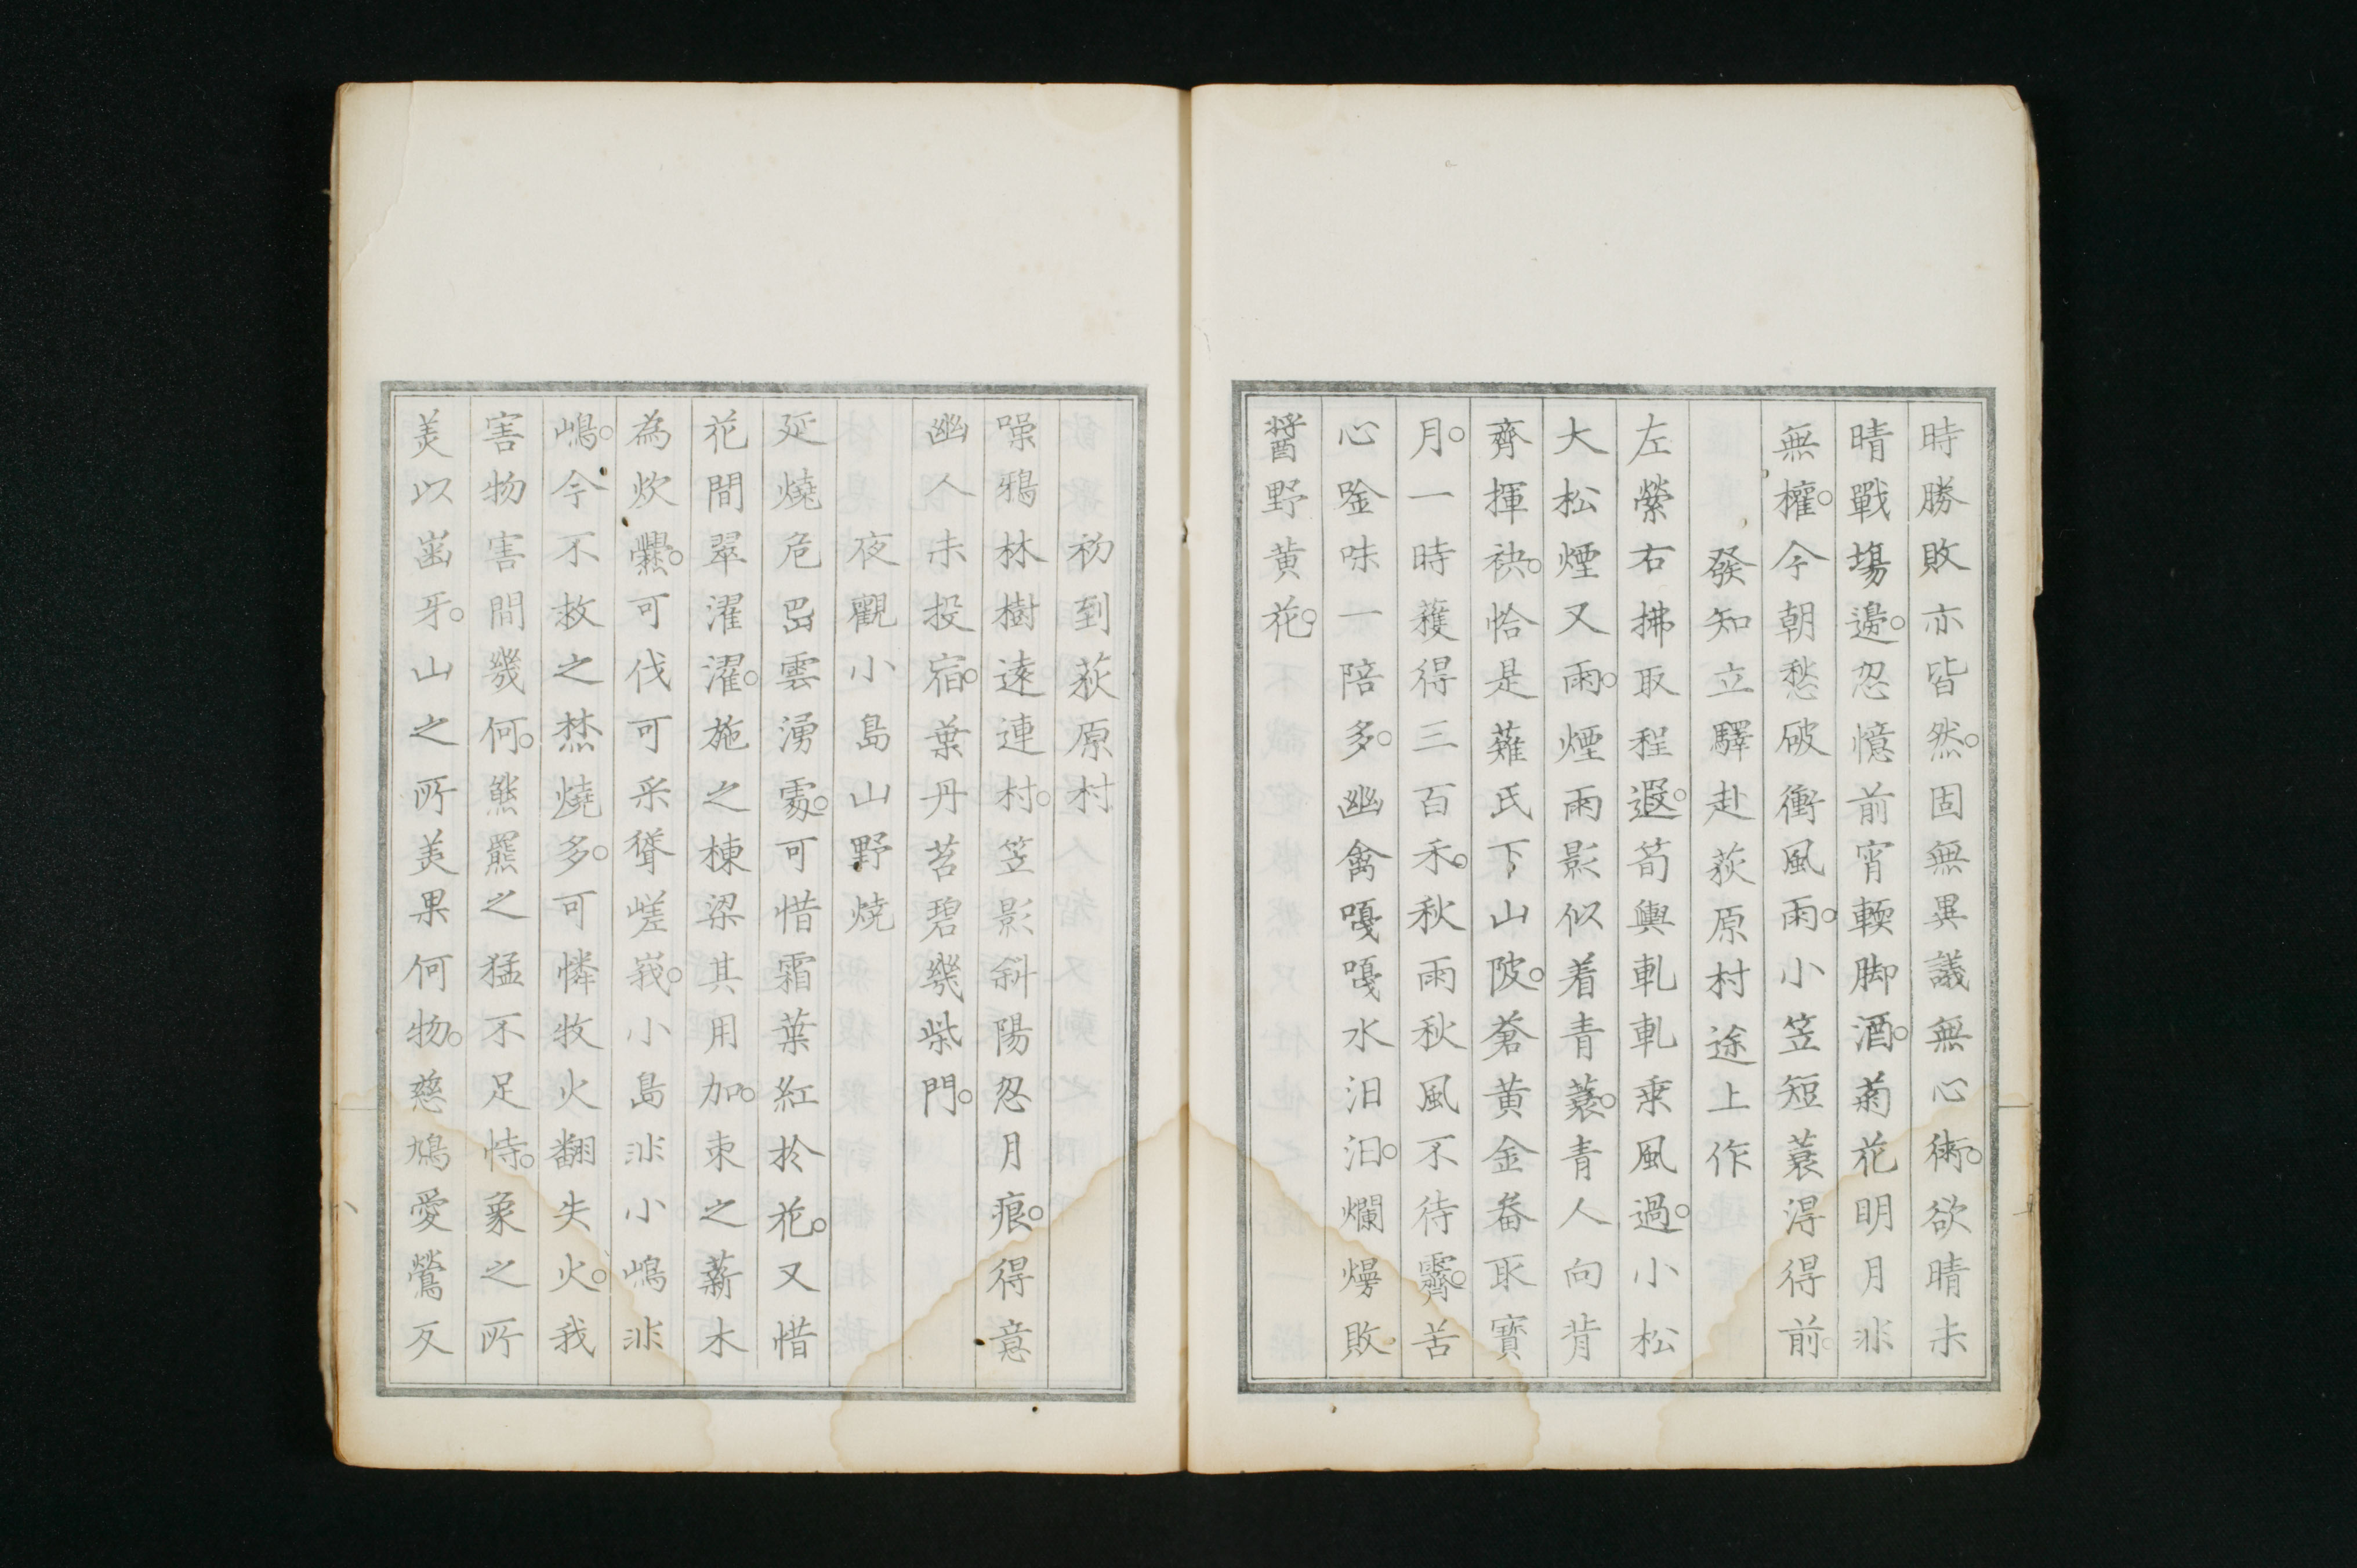 時勝敗亦皆然。固無異議無心術。欲晴未
晴戰場邊。忍憶前宵輭脚酒。菊花明月非
無權。今朝愁破衝風雨。小笠短蓑得得前。
發知立驛赴荻原村途上作
左縈右拂取程遐。筍輿軋軋乗風過。小松
大松煙又雨。煙雨影似着青蓑。青人向背
齊揮袂。恰是薙氏下山陂。蒼黄金畚取寶
月。一時蕵得三百禾。秋雨秋風不待霽。苦
心唫味一陪多。幽禽嘎嘎水汨汨。爛熳敗
醤野黄花。
初到荻原村
噪鴉林樹遠連村。笠影斜陽忍月痕。得意
幽人未投宿。葉丹苔碧幾柴門。
夜觀小島山野燒
延燒危嵒雲湧處。可惜霜葉紅於花。又惜
花間翠濯濯。施之棟梁其用加。束之薪木
為炊爨。可伐可采聳嵯峩。小島非小嶋非
嶋。今不救之焚燒多。可憐牧火翻失火。我
害物害間幾何。熊羆之猛不足恃。象之所
美以齒牙。山之所美果何物。慈鳩愛鶯反